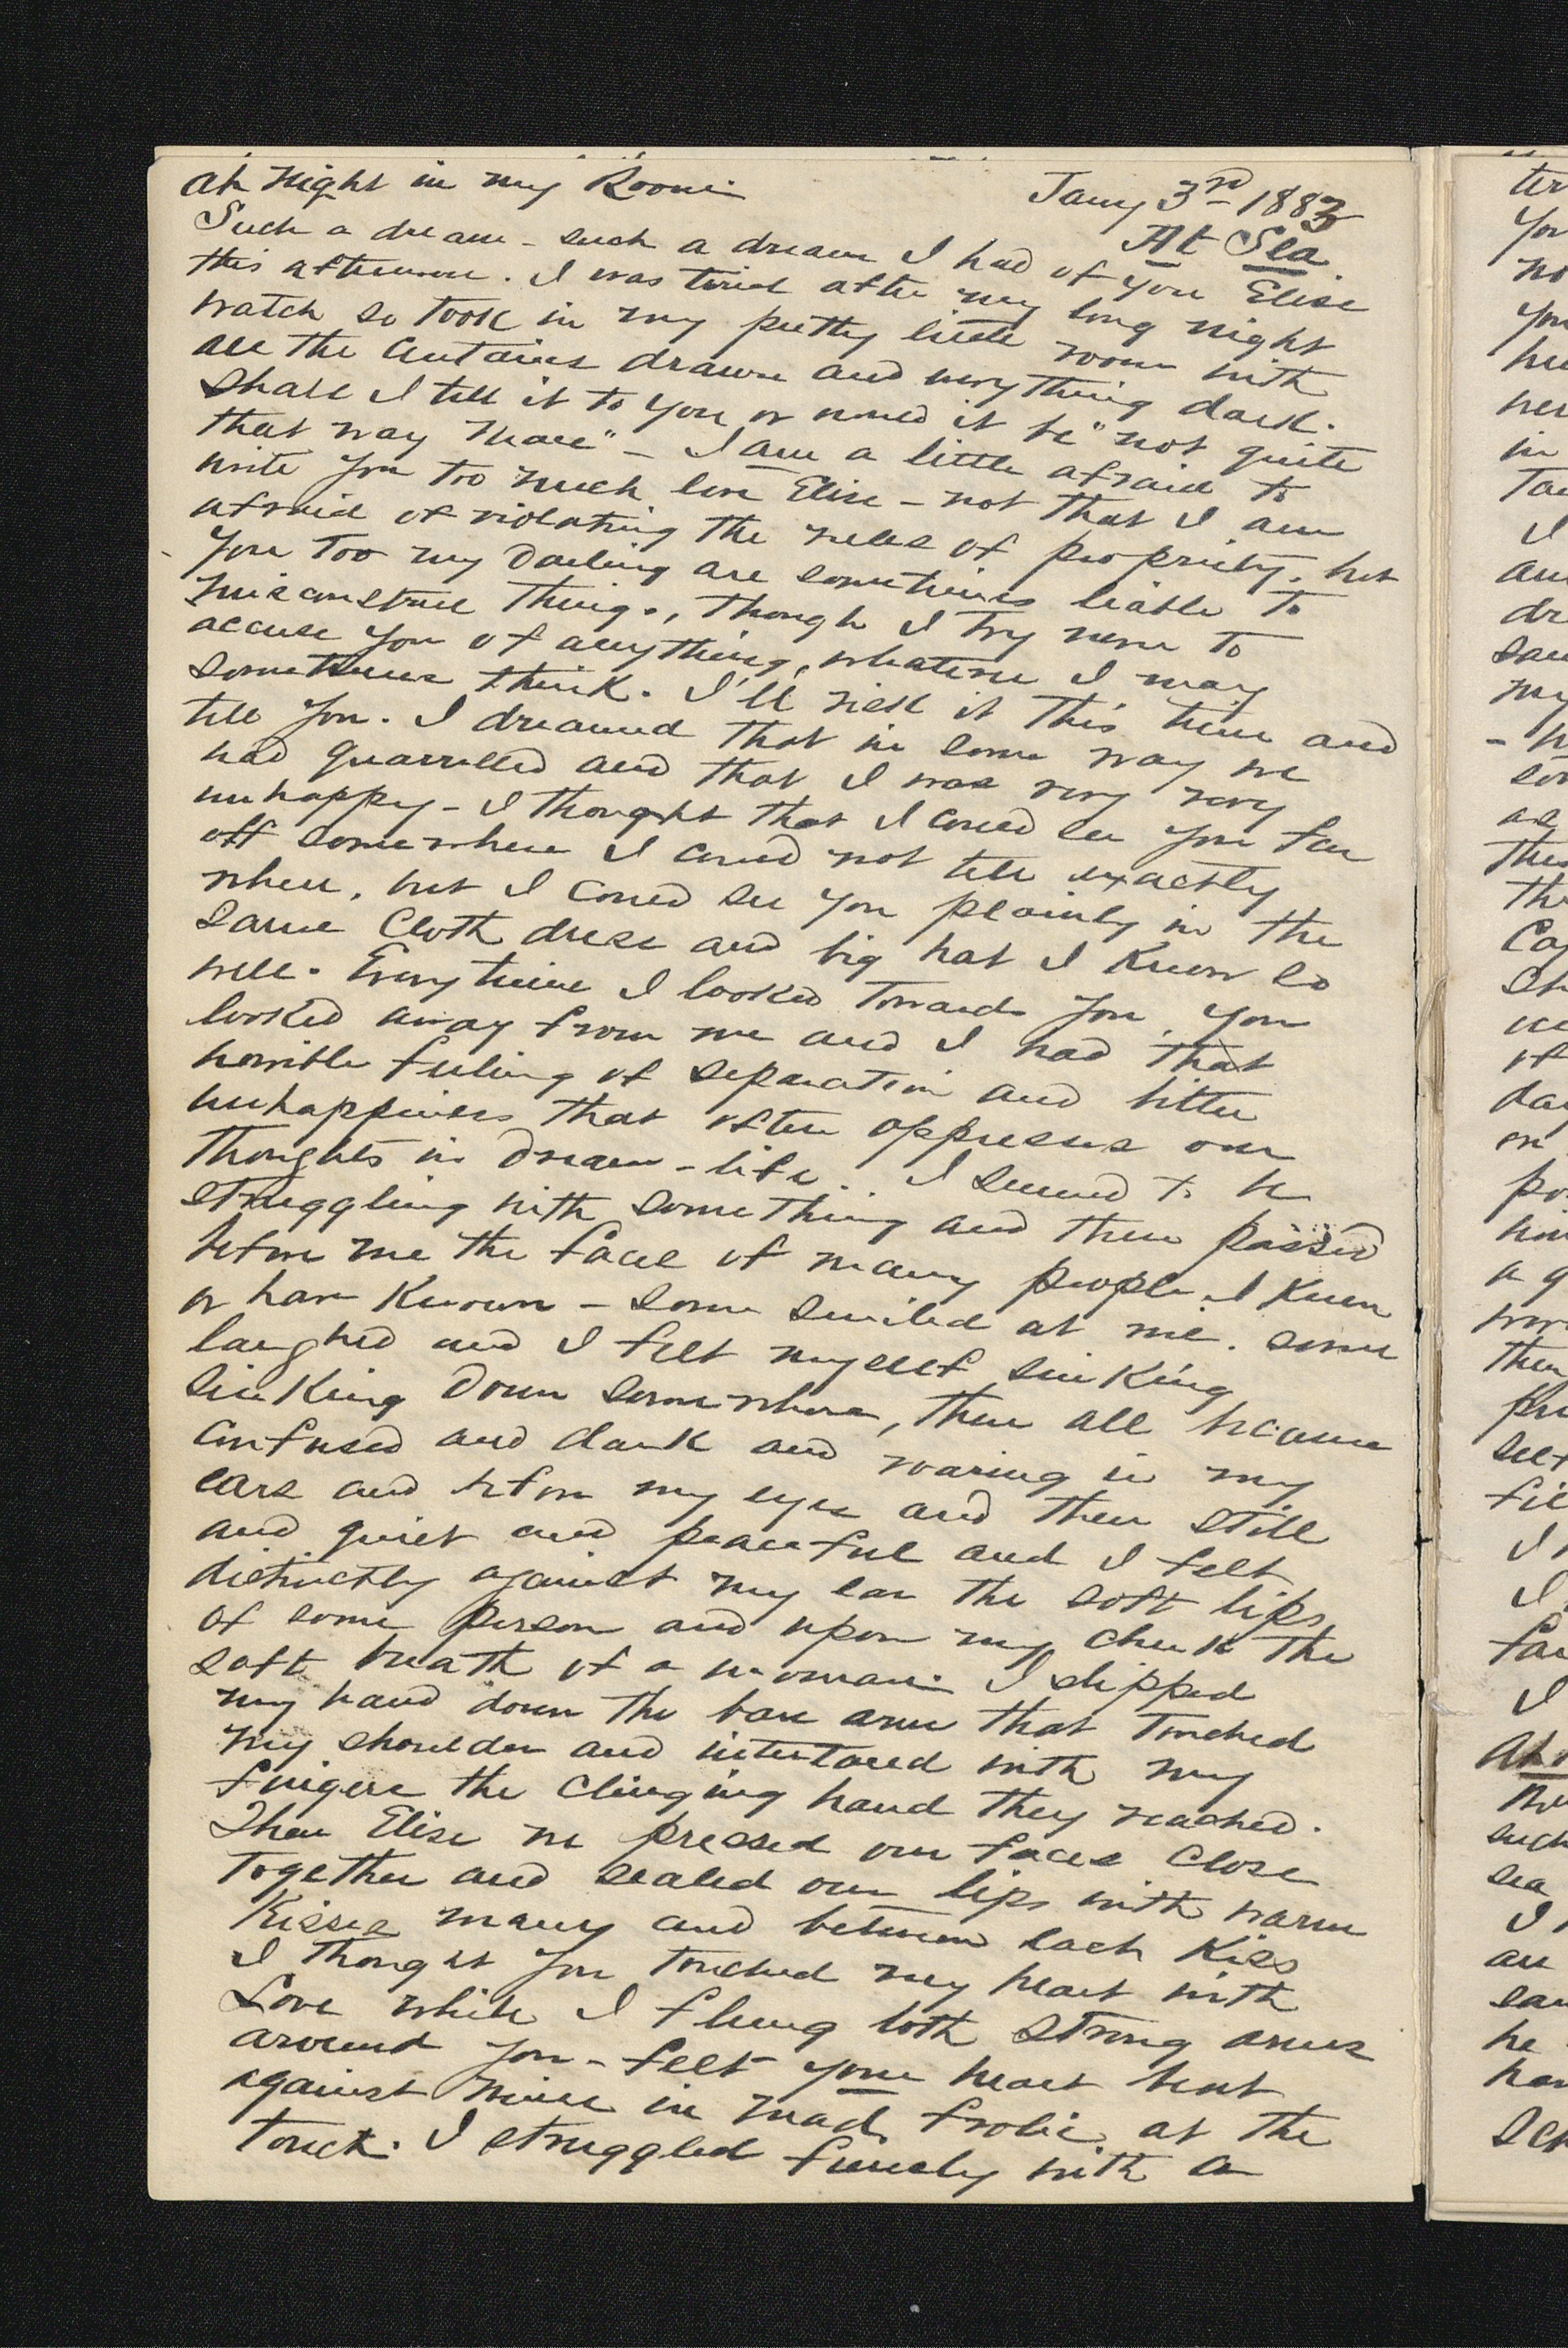 At night in my Room
Jany 3rd 1883
At Sea.
Such a dream - such a dream I had of you Elise
this afternoon. I was tired after my long night
watch so took in my pretty little room with
all the curtains drawn and everything dark.
Shall I tell it to you or would it be "not quite
that way Mate" - I am a little afraid to
write you too much love Elise - not that I am
afraid of violating the rules of propriety, but
you too my Darling are sometimes liable to
misconstrue things, though I try never to
accuse you of anything, whatever I may
sometimes think. I'll risk it this time and
tell you. I dreamed that in some way we
had quarrelled and that I was very very
unhappy - I thought that I could see you far
off somewhere I could not tell exactly
where, but I could see you plainly in the
same Cloth dress and big hat I know so
well. Everytime I looked towards you, you
looked away from me and I had that
horrible feeling of separation and bitter
unhappiness that often oppresses our
thoughts in Dream-life. I seemed to be
struggling with something and there passed
before me the faces of many people I knew
or have known - some smiled at me. some
laughed and I felt myself sinking
sinking down somewhere, then all became
confused and dark and roaring in my
ears and before my eyes and then still
and quiet and peaceful and I felt
distinctly against my ear the soft lips
of some person and upon my cheek the
soft breath of a woman. I slipped
my hand down the bare arm that touched
my shoulder and interlaced with my
fingers the clinging hand they reached.
Then Elise we pressed our faces close
together and sealed our lips with warm
Kisses many and between each Kiss
I thought you touched my heart with
Love while I flung both strong arms
around you - felt your heart beat
against mine in mad frolic at the
touch. I struggled fiercely with a